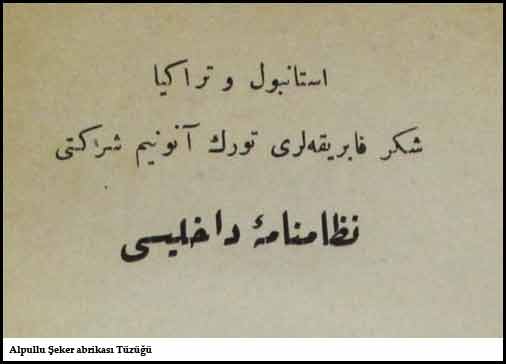 استانبول و تراكيا
شكر فابريقه‌لرى تورك آنونيم شركتى
نظامنامۀ داخليسى
Alpullu Şeker abrikası Tüzüğü